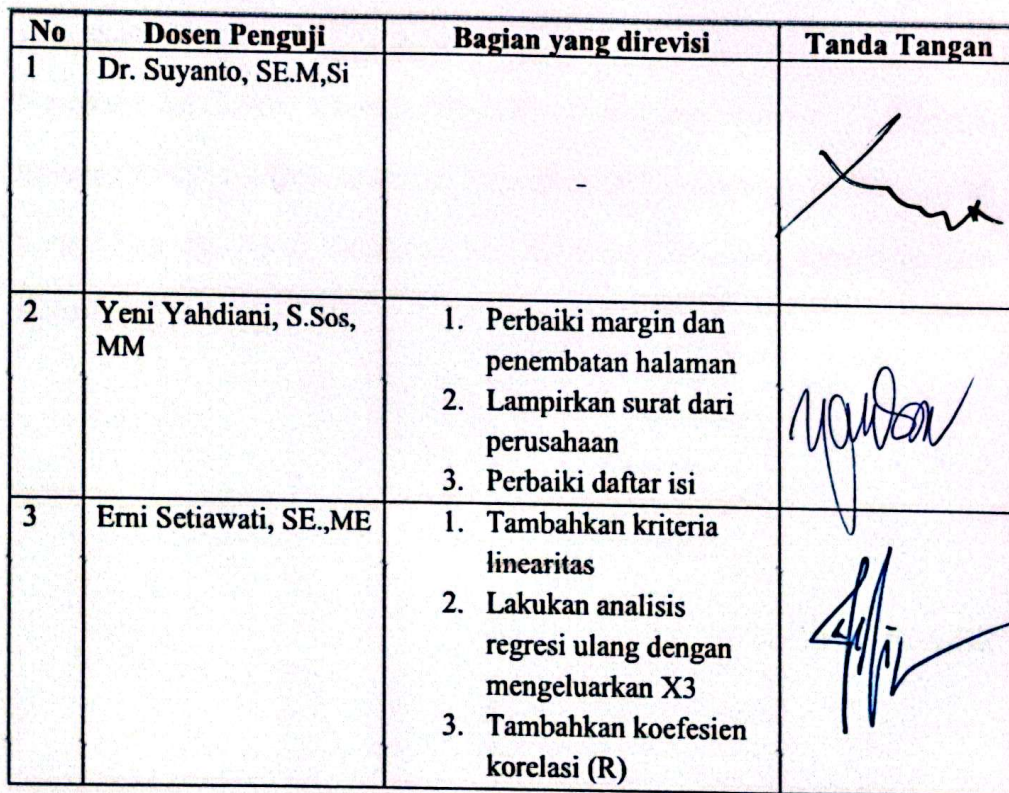 No Dosen Penguji Bagian yang direvisi Tanda Tangan
1 Dr. Suyanto, SE.M,Si
-
2 Yeni Yahdiani, S.Sos,
MM
1. Perbaiki margin dan
penembatan halaman
2. Lampirkan surat dari
perusahaan
3. Perbaiki daftar isi
3 Erni Setiawati, SE.,ME
1. Tambahkan kriteria
linearitas
2. Lakukan analisis
regresi ulang dengan
mengeluarkan X3
3. Tambahkan koefesien
korelasi (R)